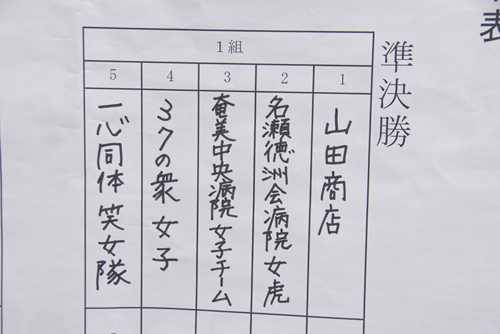 表
準決勝
1組
1
2
3
4
5
山田商店
名瀬徳洲会病院 女虎
奄美中央病院 女子チーム
37の衆 女子
一心同体 笑女隊